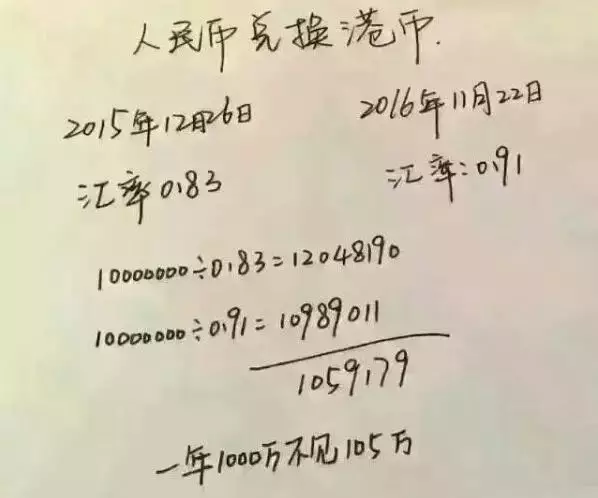 人民币兑换港币.
2015年12月26日 2016年11月22日
汇率0.83 汇率:0.91
10000000÷0.83=12048190
10000000÷0.91=10989011
1059179
一年1000万不见105万